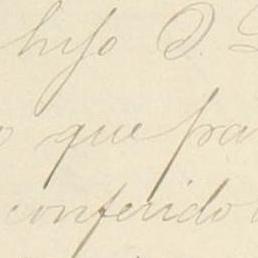 hijo D.
que pa
conferido